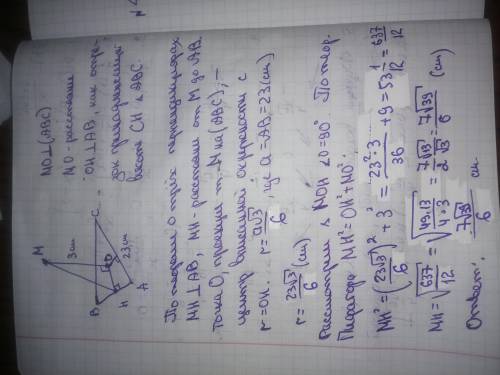 N 4
M
3 см
C
O
B
H
A
23 см
MO⊥(ABC)
MO - расстояние
OH⊥AB, как отре-
зок принадлежащий
высоте CH △ABC.
По теореме о трёх перпендикулярах
MH⊥AB, MH - расстояние от M до AB.
Точка O, проекция т. M на (ABC), -
центр вписанной окружности с
r = OH. r = a√3/6, где a = AB = 23 (см)
r = 23√3/6 (см)
Рассмотрим △ MOH ∠O = 90°. По теор.
Пифагора MH² = OH² + MO².
MH² = (23√3/6)² + 3² = 23²·3/36 + 9 = 53 1/12 = 637/12
MH = √637/12 = √49·13/4·3 = 7√13/2√3 = 7√39/6 (см)
Ответ: 7√39/6 см